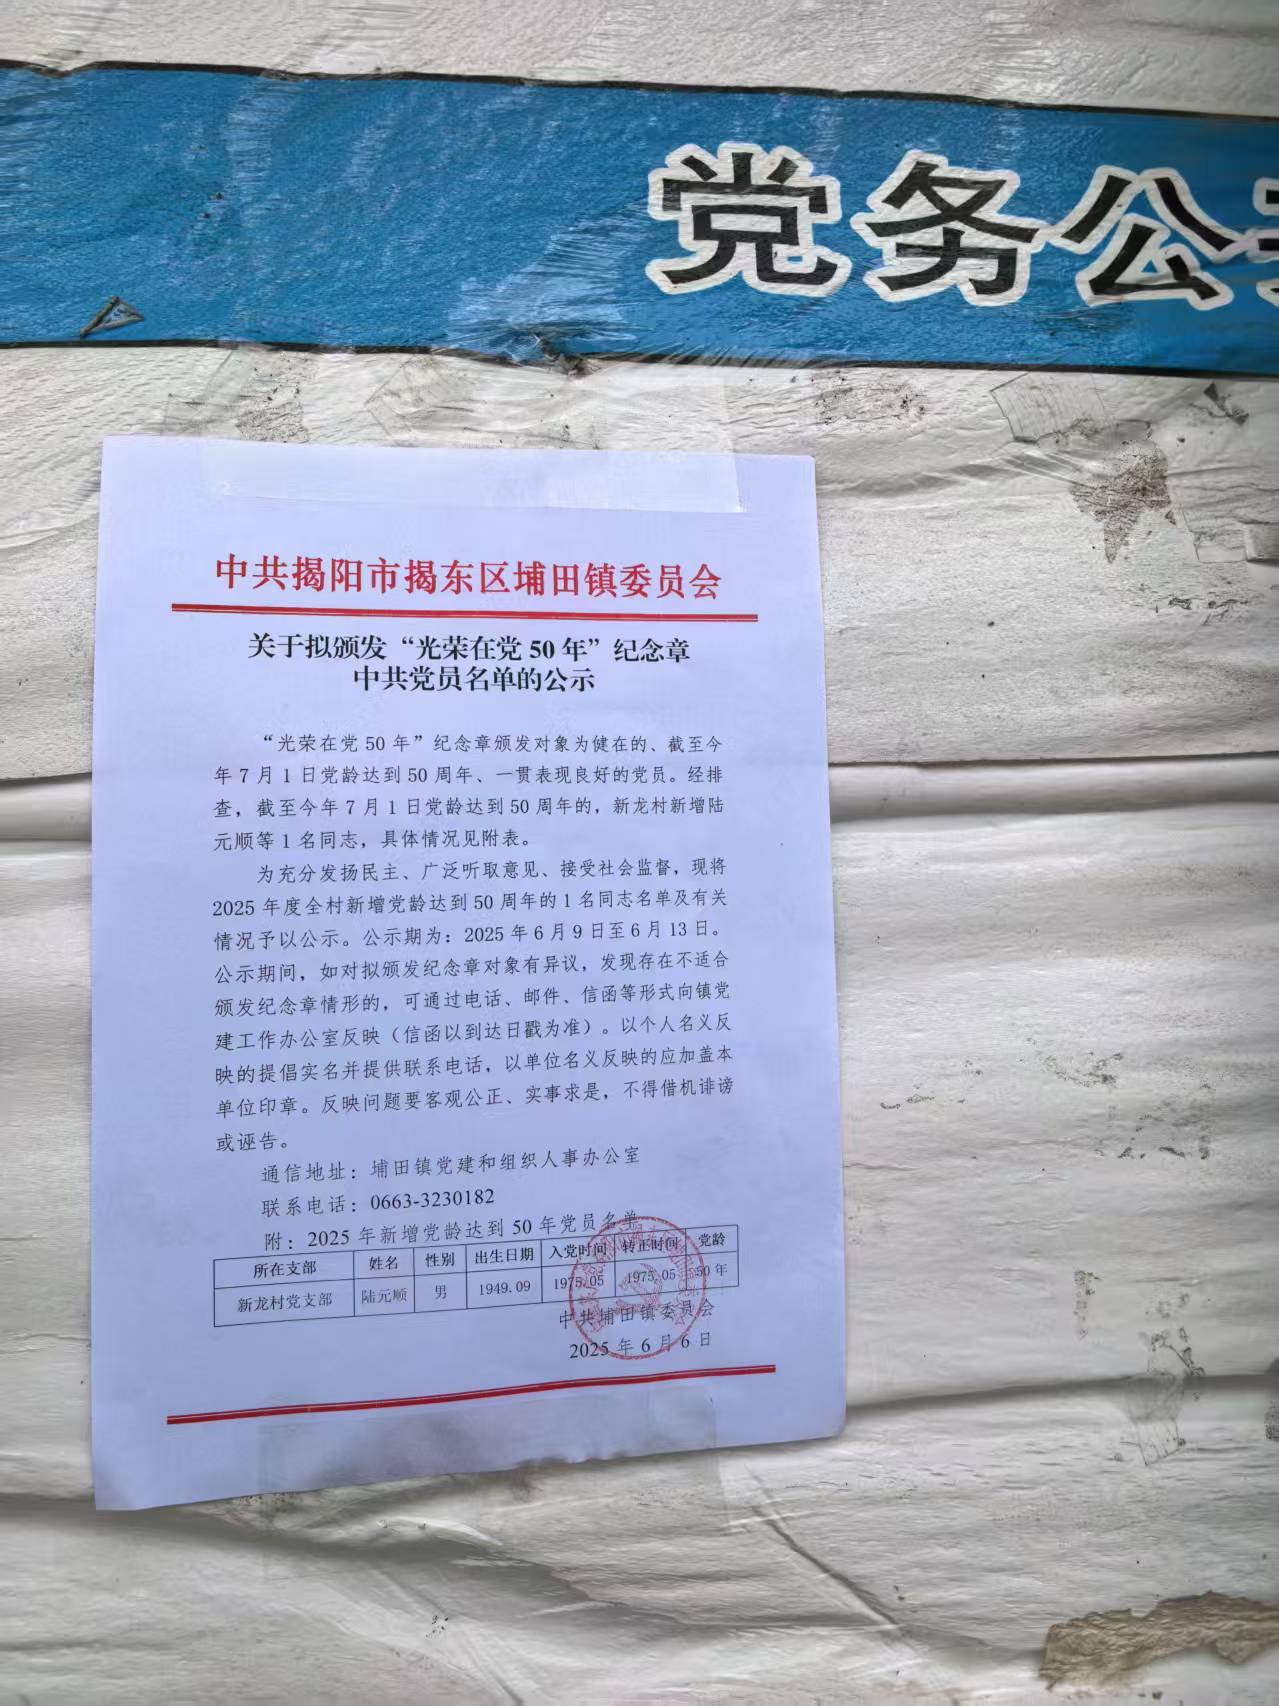 党务公
中共揭阳市揭东区埔田镇委员会
关于拟颁发“光荣在党50年”纪念章
中共党员名单的公示
“光荣在党50年”纪念章颁发对象为健在的、截至今
年7月1日党龄达到50周年、一贯表现良好的党员。经排
查，截至今年7月1日党龄达到50周年的，新龙村新增陆
元顺等1名同志，具体情况见附表。
为充分发扬民主、广泛听取意见、接受社会监督，现将
2025年度全村新增党龄达到50周年的1名同志名单及有关
情况予以公示。公示期为：2025年6月9日至6月13日。
公示期间，如对拟颁发纪念章对象有异议，发现存在不适合
颁发纪念章情形的，可通过电话、邮件、信函等形式向镇党
建工作办公室反映（信函以到达日戳为准）。以个人名义反
映的提倡实名并提供联系电话，以单位名义反映的应加盖本
单位印章。反映问题要客观公正、实事求是，不得借机诽谤
或诬告。
通信地址：埔田镇党建和组织人事办公室
联系电话：0663-3230182
附：2025年新增党龄达到50年党员名单
所在支部 姓名 性别 出生日期 入党时间 转正时间 党龄
新龙村党支部 陆元顺 男 1949.09 1975.05 1975.05 50年
中共埔田镇委员会
2025年6月6日